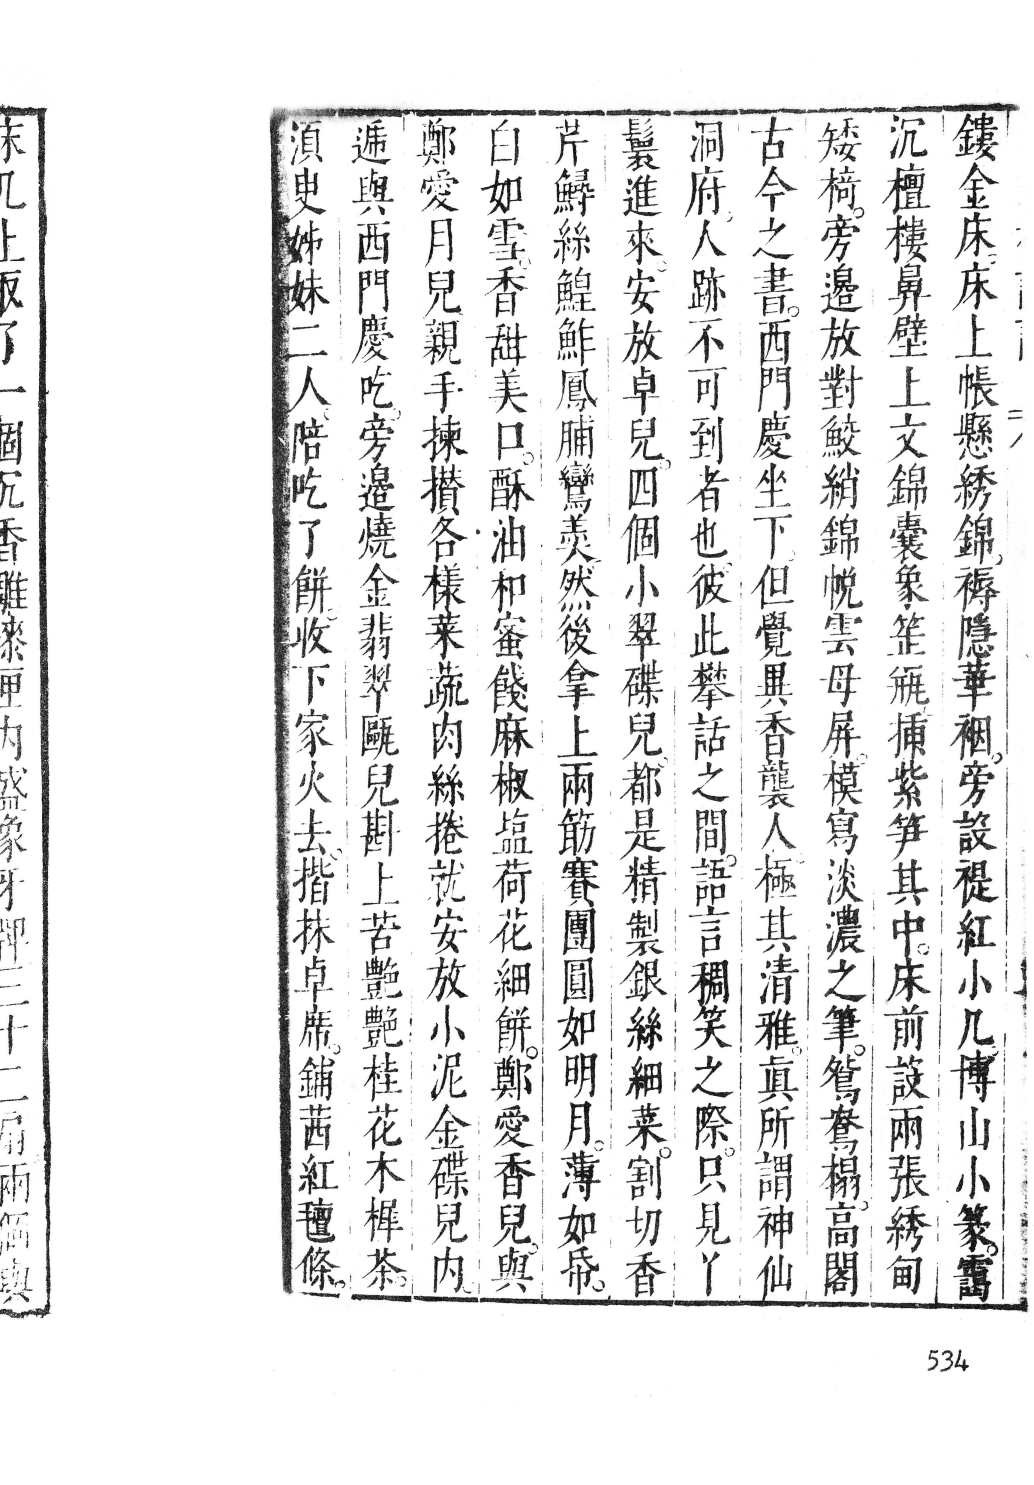 鏤金床。床上帳懸綉錦。褥隱華裀。旁設禔紅小几。博山小篆。靄
沉檀樓鼻壁上文錦囊象窰瓶。挿紫笋其中。床前設兩張綉甸
矮椅。旁邉放對鮫綃錦帨雲母屏。模寫淡濃之筆。鴛鴦榻。高閣
古今之書。西門慶坐下。但覺異香襲人。極其清雅。眞所謂神仙
洞府。人跡不可到者也。彼此攀話之間。語言稠笑之際。只見丫
鬟進來。安放卓兒。四個小翠碟兒。都是精製銀絲細菜。割切香
芹鱘絲鰉鮓鳳脯鸞羙。然後拿上兩筯賽團圓如明月。薄如帋。
白如雪。香甜美口。酥油和蜜餞麻椒塩荷花細餅。鄭愛香兒。與
鄭愛月兒親手揀攅各樣菜蔬肉絲捲就。安放小泥金碟兒內。
遞與西門慶吃。旁邉燒金翡翠甌兒。斟上苦艶艶桂花木樨茶。
湏臾姊妹二人。陪吃了餅。收下家火去。揩抹卓席。鋪茜紅氊條。
床几上取了一個沉香雕漆匣內盛象牙牌三十二扇兩個與
534